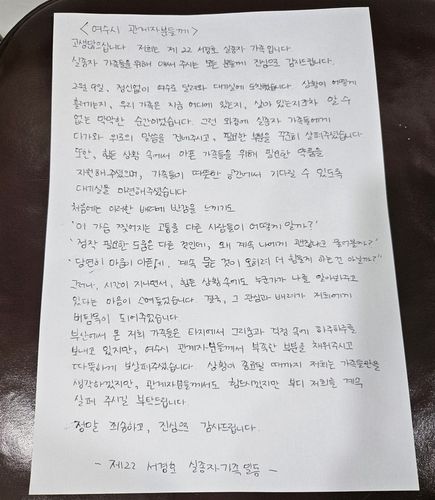 <여수시 관계자분들께>
고생많으십니다. 저희는 제 22 서경호 실종자 가족입니다.
실종자 가족들을 위해 애써 주시는 모든 분들께 진심으로 감사드립니다.
2월 9일, 정신없이 여수로 달려와 대기실에 도착했습니다. 상황이 어떻게
흘러가는지, 우리 가족은 지금 어디에 있는지, 살아 있는지조차 알 수
없는 막막한 순간이었습니다. 그런 와중에 실종자 가족들에게
다가와 위로의 말씀을 건네주시고, 필요한 부분을 꾸준히 살펴주셨습니다.
또한, 힘든 상황 속에서 아픈 가족들을 위해 필요한 약품을
지원해주셨으며, 가족들이 따뜻한 공간에서 기다릴 수 있도록
대기실을 마련해주셨습니다.
처음에는 이러한 배려에 반감을 느끼기도
'이 가슴 찢어지는 고통을 다른 사람들이 어떻게 알까?'
'정작 필요한 도움은 다른 것인데, 왜 계속 나에게 괜찮냐고 물어볼까?'
'당연히 마음이 아픈데, 계속 묻는 것이 오히려 더 힘들게 하는 건 아닐까?'
그러나, 시간이 지나면서, 힘든 상황 속에도 누군가가 나를 알아봐주고
있다는 마음이 스며들었습니다. 결국, 그 관심과 배려가 저희에게
버팀목이 되어주었습니다.
부산에서 온 저희 가족들은 타지에서 그리움과 걱정 속에 하루하루를
보내고 있지만, 여수시 관계자분들께서 부족한 부분을 채워주시고
따뜻하게 보살펴주셨습니다. 상황이 종료될 때까지 저희는 가족들만을
생각하겠지만, 관계자분들께서도 힘드시겠지만 부디 저희를 계속
살펴 주시길 부탁드립니다.
정말 죄송하고, 진심으로 감사드립니다.
- 제22 서경호 실종자가족 일동 -